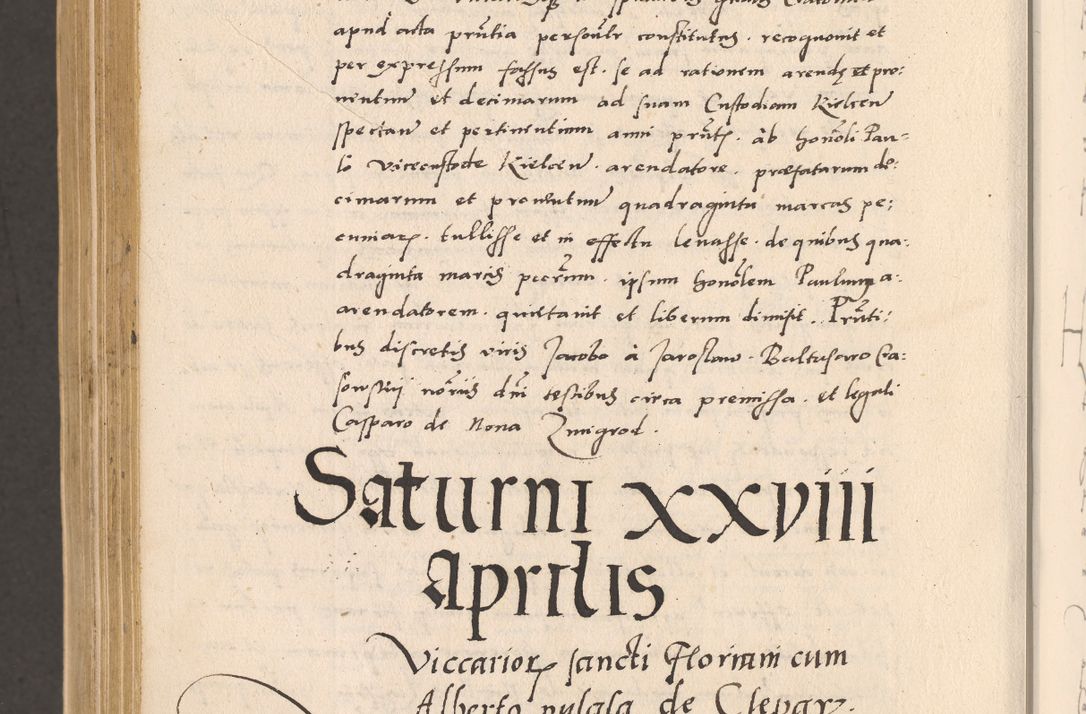 apud acta prñtia personlr constitutus. recognouit et
per expressum fassus est. se ad rationem arendę et pro:
uentuum et decimarum ad suam Custodiam Kielcen
spectan et pertinentium anni prñtis. ab honoli Pau-
lo vicecustode Kielcen. arendatore. præfatarum de:
cimarum et prouentuum quadraginta marcas pe:
cuniarz. tullisse et in effectu leuasse. de quibus qua:
draginta marcis pecum. ipsum honolem Paulum a:
arendatorem. quietauit et liberum dimisit. Prñti:
bus discretis viris Jacobo à Jaroslaw. Baltasaro Cra:
souskij noriis dni testibus circa premissa. et legali
Casparo de Noua Zmigrod.
Saturni xxviii
Aprilis
Viccariorz sancti Floriani cum
Alberto pulala de Cleparz.